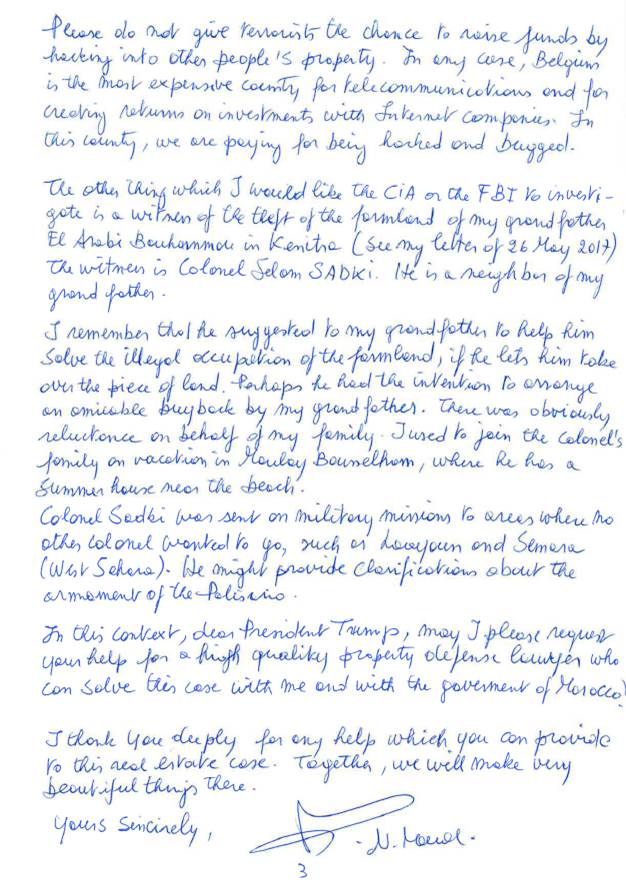 Please do not give terrorists the chance to raise funds by
hacking into other people's property. In any case, Belgium
is the most expensive county for telecommunications and for
creating returns on investments with Internet companies. In
this county, we are paying for being hacked and bugged.
The other thing which I would like the CiA or the FBI to investi-
gate is a witness of the theft of the farmland of my grandfather
El Arabi Bouhammou in Kenitra (see my letter of 26 May 2017)
The witness is Colonel Selam SADKi. He is a neighbor of my
grand father.
I remember that he suggested to my grandfather to help him
solve the illegal occupation of the farmland, if he lets him take
over the piece of land. Perhaps he had the intention to arrange
an amicable buyback by my grand father. There was obviously
reluctance on behalf of my family. I used to join the colonel's
family on vacation in Moulay Bouselham, where he has a
summer house near the beach.
Colonel Sadki was sent on military missions to areas where no
other colonel wanted to go, such as Laayoun and Semara
(West Sahara). He might provide clarifications about the
armament of the Polisario.
In this context, dear President Trump, may I please request
your help for a high quality property defense lawyer who
can solve this case with me and with the goverment of Morocco?
I thank you deeply for any help which you can provide
to this real estate case. Together, we will make very
beautiful things there.
Yours Sincirely,
N.
3